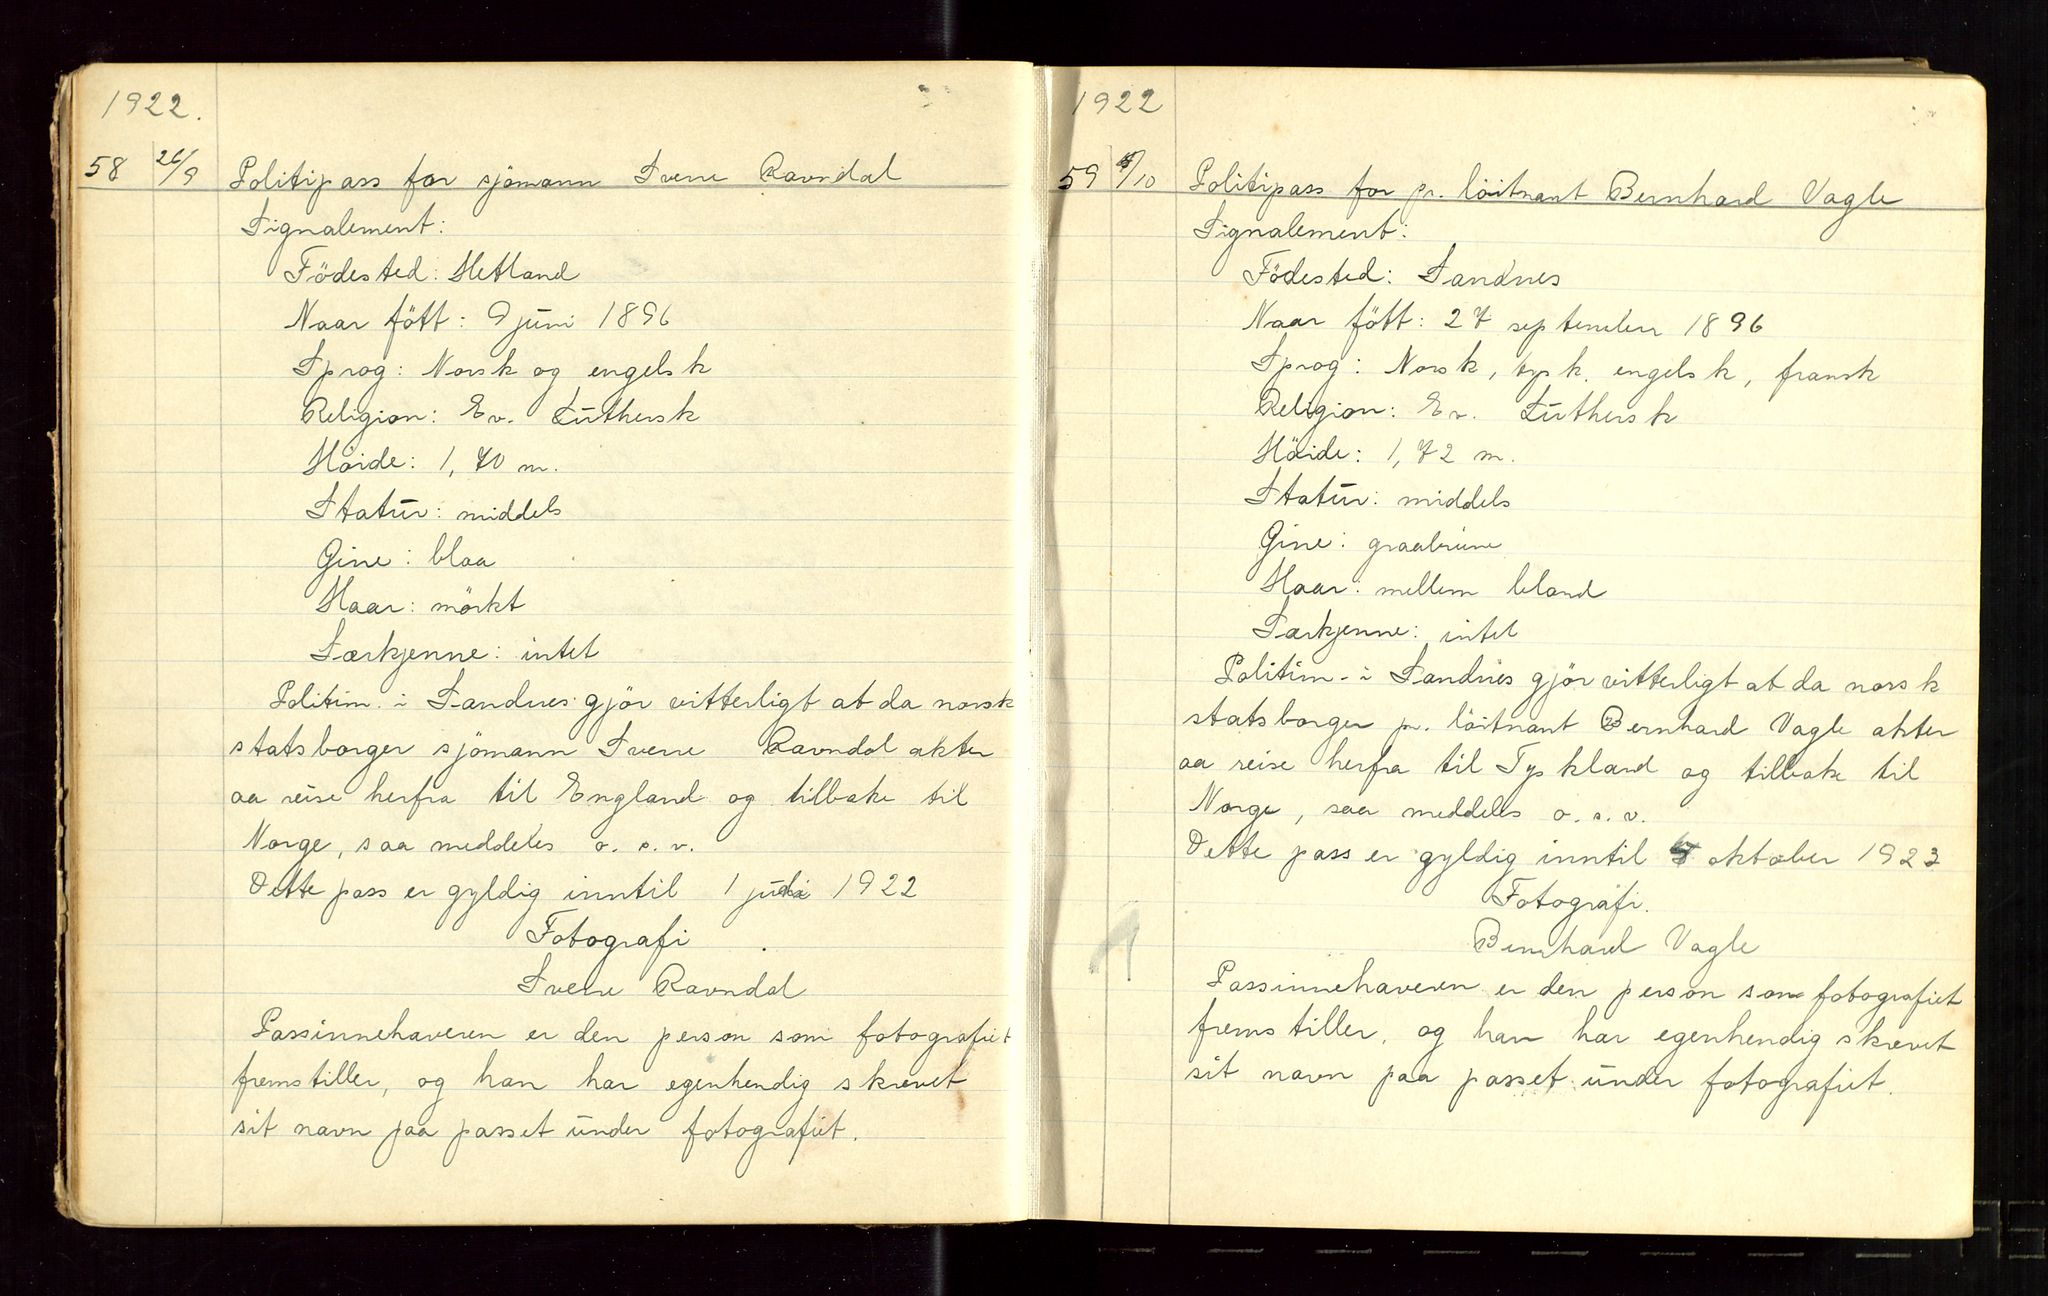 1922.
58 26/9 Politipass for sjømann Sverre Ravndal
Signalement:
Födested: Hetland
Naar fött: 9 juni 1896
Sprog: Norsk og engelsk
Religion: Ev. Luthersk
Höide: 1,70 m.
Statur: middels
Öine: blaa
Haar: mörkt
Særkjenne: intet
Politim. i Sandnes gjör vitterligt at da norsk
statsborger sjömann Sverre Ravndal akter
aa reise herfra til England og tilbake til
Norge, saa meddeles o. s. v.
Dette pass er gyldig inntil 1 1922
Fotografi
Sverre Ravndal
Passinnehaveren er den person som fotografiet
fremstiller, og han har egenhendig skrevet
sit navn paa passet under fotografiet.
1922
59 /10 Politipass for pr. löitnant Bernhard Vagle
Signalement:
Födested: Sandnes
Naar fött: 27 september 1896
Sprog: Norsk, tysk, engelsk, fransk
Religion: Ev. Luthersk
Höide: 1,72 m.
Statur: middels
Öine: graabrune
Haar: mellem blond
Særkjenne: intet
Politim. i Sandnes gjör vitterligt at da norsk
statsborger pr. löitnant Bernhard Vagle akter
aa reise herfra til Tyskland og tilbake til
Norge, saa meddeles o. s. v.
Dette pass er gyldig inntil oktober 1923
Fotografi.
Bernhard Vagle
Passinnehaveren er den person som fotografiet
fremstiller, og han har egenhendig skrevet
sit navn paa passet under fotografiet.